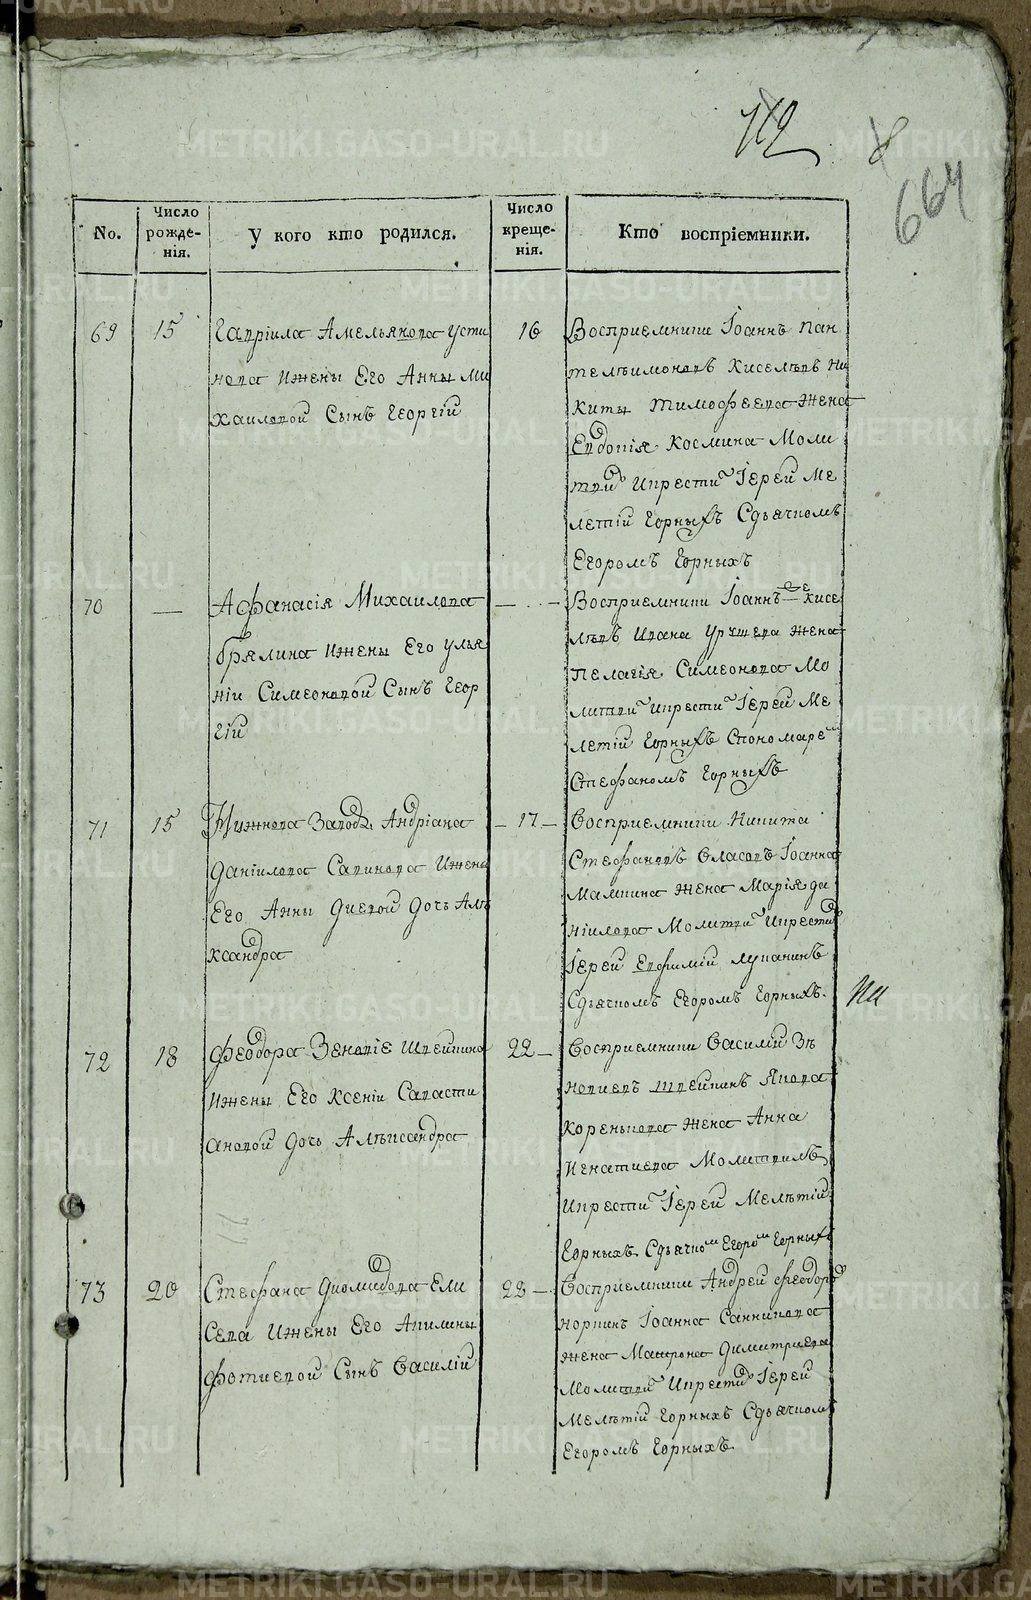 112
8
664
No.
Число рожде-нія.
У кого кто родился.
Число креще-нія.
Кто воспріемники.
69
15
Гавріила Амельянова Усти
нова ижены Его Анны Ми
хаиловой Сынъ Георгій
16
Восприемники Іоаннъ Пан
телѣимоновъ Киселѣвъ Ни
киты Тимофеева жена
Евдокія Космина Моли
твил икрести Іерей Ме
летій Горныхъ Сдьячкомъ
Егоромъ Горныхъ
70
—
Афанасія Михаилова
брялина ижены Его улья
ніи Симеоновой Сынъ Геор
гій
— —
Восприемники Іоаннъ Кисе
лѣвъ Ивана жена
Пелагія Симеонова Мо
литвил икрести Іерей Ме
летій Горныхъ Спономарем
Стефаномъ Горныхъ
71
15
Нижнева Завода Андріана
Даніилова Савинова ижены
Его Анны Диевой дочь Алѣ
ксандра
— 17 —
Восприемники Никита
Стефановъ Власовъ Іоанна
Мамкина жена Марія да
ніилова Молитвил икрестил
Іерей Евфимій Луканинъ
Сдьячкомъ Егоромъ Горныхъ.
72
18
Феодора Зеновіе Шрейкина
ижены Его Ксеніи Савасти
ановой дочь Алѣксандра
22 —
Восприемники Василій Зѣ
новиевъ Шрейкинъ Якова
Коренькова жена Анна
Игнатиева Молитвилъ
икрести Іерей Мелѣтій
Горныхъ Сдьячком Егором Горныхъ
73
20
Стефана Диомидова Ели
Сева ижены Его Акилины
Фотиевой Сынъ Василій
22 —
Восприемники Андрей Феодоро
Норкинъ Іоанна Санникова
жена Матрона Димитриева
Молитвил икрестил Іерей
Мелѣтій Горныхъ Сдьячкомъ
Егоромъ Горныхъ
METRIKI.GASO-URAL.RU